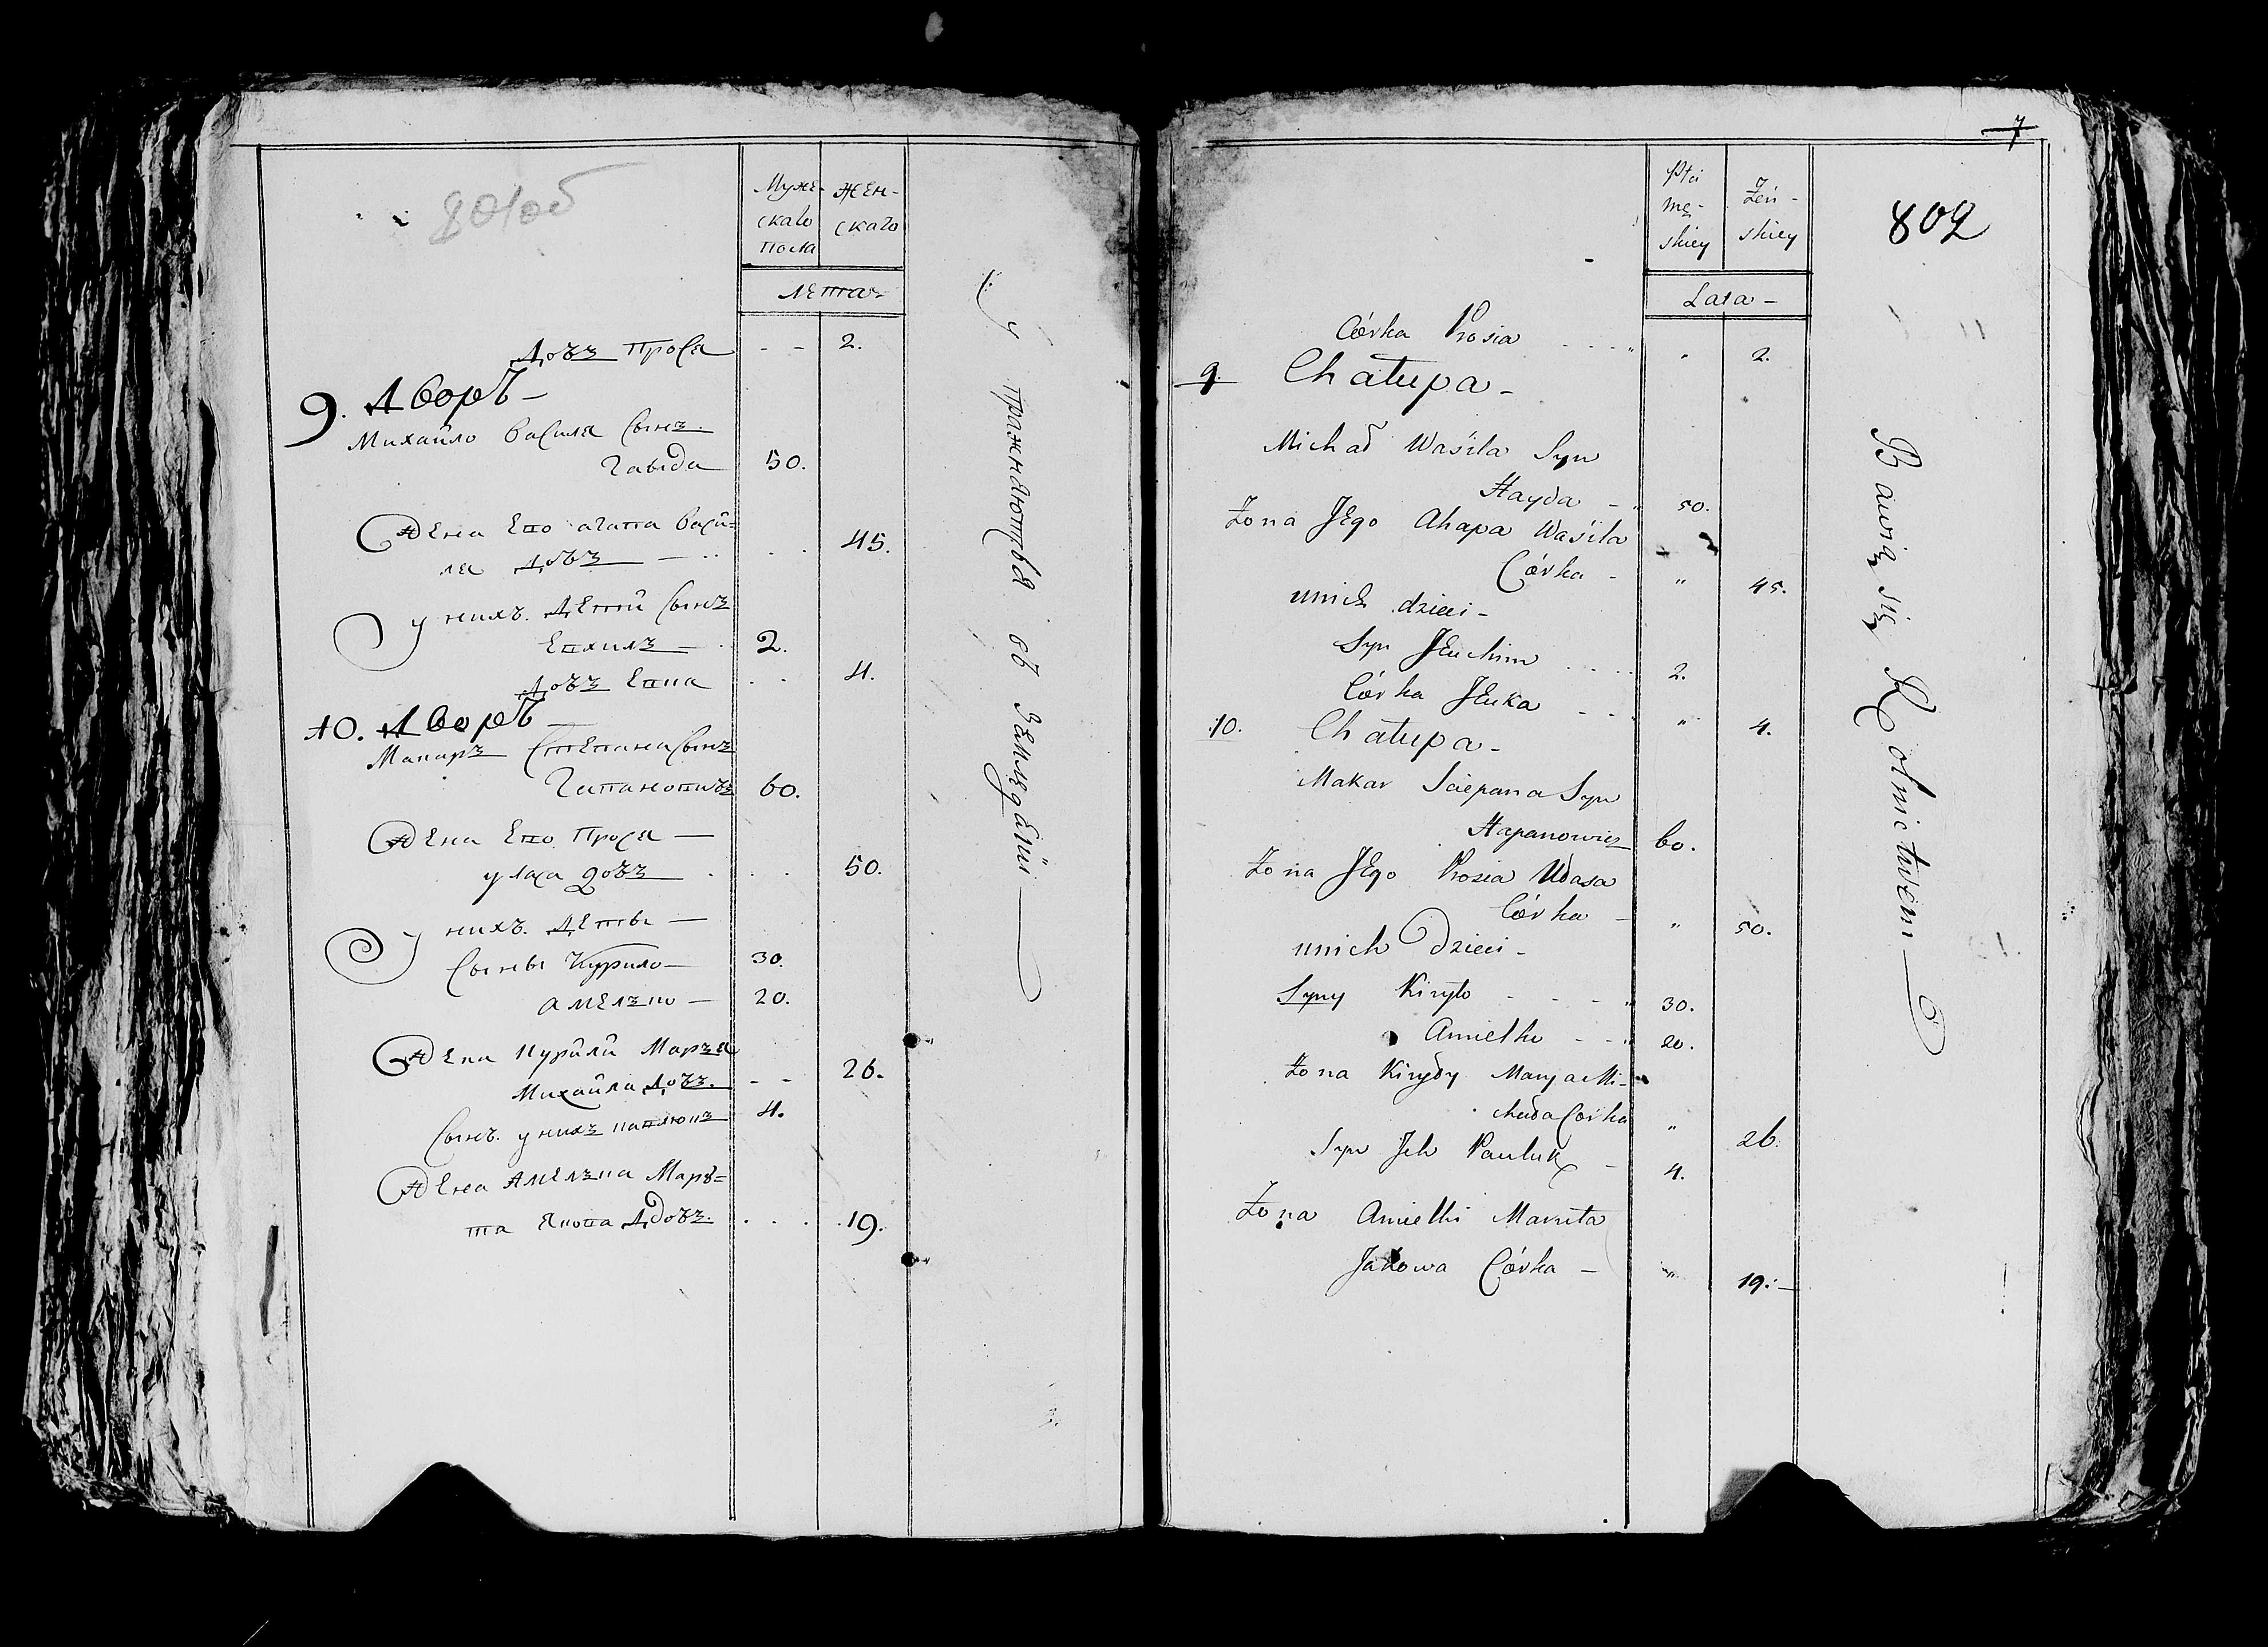 801об
Муже-
скаго
пола
Жен-
скаго
Лета
Дочъ Прося 2.
9. Дворъ -
Михайло Василя Сынъ
Гайда 50.
Жена Его Агапа Васи=
ля дочъ 45.
у нихъ Дети Сынъ
Евхимъ 2.
Дочъ Евка 4.
10. Дворъ
Макаръ Степана Сынъ
Гапановичъ 60.
Жена Его Прося —
Уласа дочъ 50.
у нихъ Дети —
Сыны Курило — 30.
Амелько — 20.
Жена Курилы Марья
Михайла дочъ 26.
Сынъ у нихъ Павлюкъ 4.
Жена Амелька Мары=
та Якова дочъ 19.
Упражняются въ Земледѣліи
7
802
Płci
mę-
skiey
Żeń-
skiey
Lata -
Córka Prosia 2.
9. Chałupa -
Michał Wasila Syn
Hayda - 50.
Żona Jego Ahapa Wasila
Córka - 45.
u nich dzieci -
Syn Jeuchim 2.
Córka Jeuka 4.
10. Chałupa -
Makar Sciepana Syn
Hapanowicz 60.
Żona Jego Prosia Ułasa
Córka - 50.
u nich Dzieci -
Syny Kiryło 30.
Amielko 20.
Żona Kiryły Marya Mi-
chała Córka 26.
Syn Ich Pauluk - 4.
Żona Amielki Maruta
Jakowa Córka - 19.
Bawią się Rolnictwem